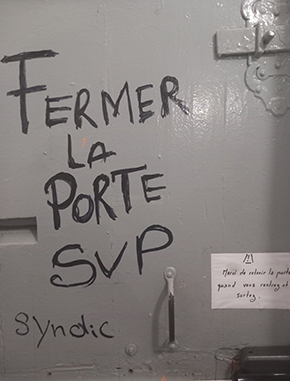 FERMER
LA
PORTE
SVP
Syndic
/!\
Merci de retenir la porte
quand vous rentrez et
sortez.